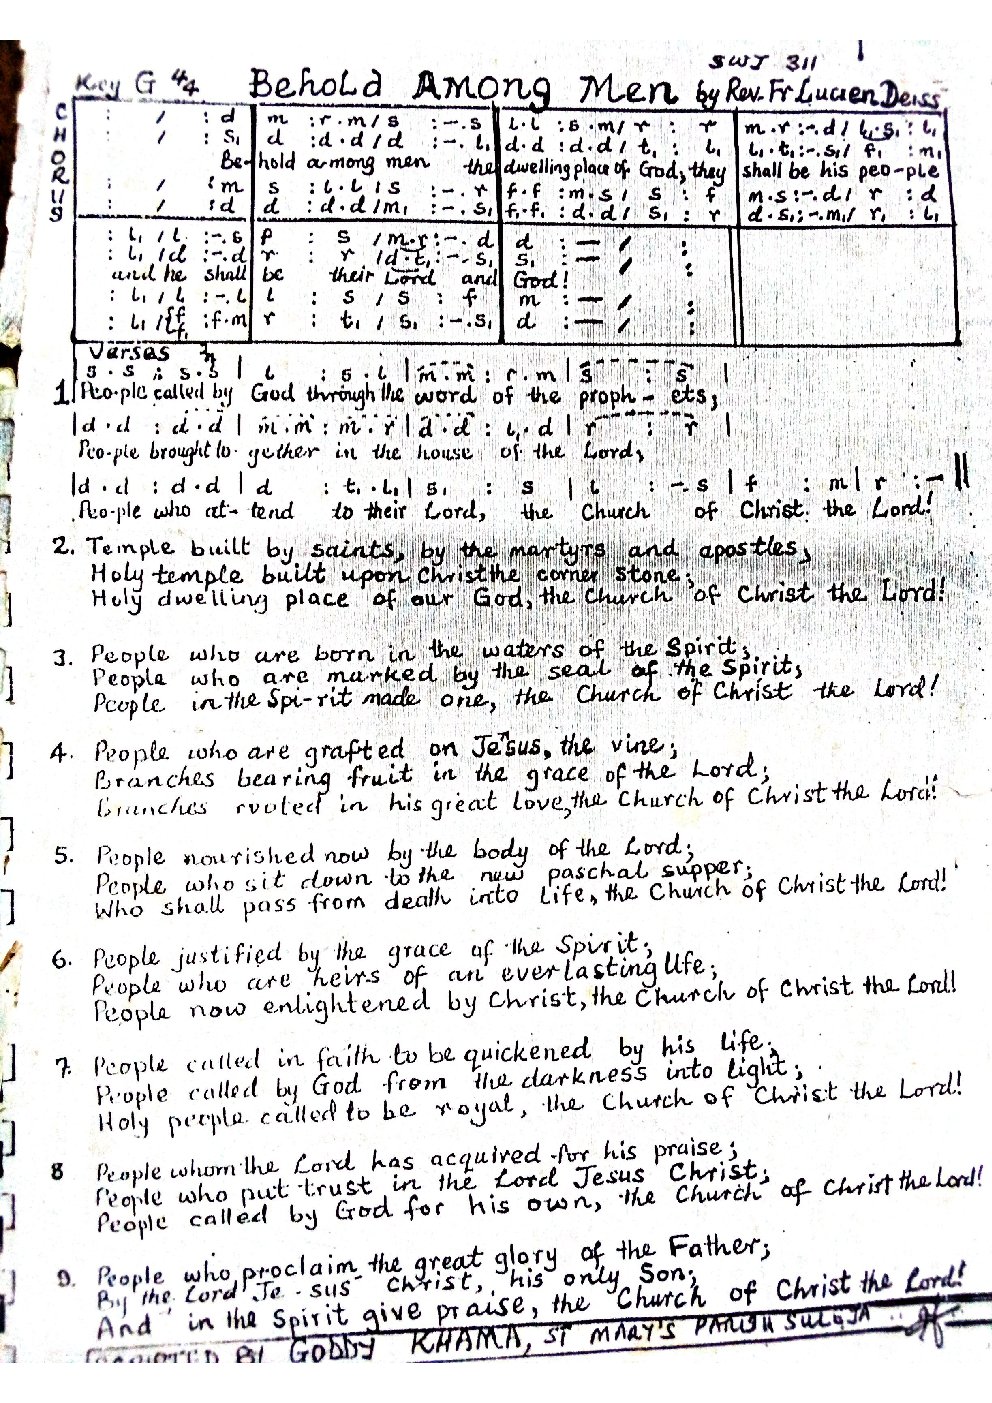 SWJ 311
Key G 4/4 Behold Among Men by Rev. Fr Lucien Deiss
CHORUS
: / : d | m : r . m / s : - . s | l . l : s . m / r : r | m . r : - . d / l₁ . s₁ : l₁
: / : s₁ | d : d . d / d : - . l₁ | d . d : d . d / t₁ : l₁ | l₁ . t₁ : - . s₁ / f₁ : m₁
Be- hold among men the dwelling place of God, they shall be his peo-ple
: / : m | s : l . l / s : - . r | f . f : m . s / s : f | m . s : - . d / r : d
: / : d | d : d . d / m₁ : - . s₁ | f₁ . f₁ : d . d / s₁ : r | d . s₁ : - . m₁ / r₁ : l₁
: l₁ / l : - . s | f : s / m . r : - . d | d : — / :
: l₁ / d : - . d | r : r / d . t₁ : - . s₁ | s₁ : — / :
and he shall be their Lord and God!
: l₁ / l : - . l | l : s / s : f | m : — / :
: l₁ / f f₁ : f . m | r : t₁ / s₁ : - . s₁ | d : — / :
Verses
s . s : s . s | l : s . l | m . m : r . m | s : s |
1 Peo-ple called by God through the word of the proph - ets;
| d . d : d . d | m . m : m . r | d . d : l₁ . d | r : r |
Peo-ple brought to- gether in the house of the Lord;
| d . d : d . d | d : t₁ . l₁ | s₁ : s | l : - . s | f : m | r : - ||
Peo-ple who at- tend to their Lord, the Church of Christ the Lord!
2. Temple built by saints, by the martyrs and apostles;
Holy temple built upon Christ the corner stone;
Holy dwelling place of our God, the Church of Christ the Lord!
3. People who are born in the waters of the Spirit;
People who are marked by the seal of the Spirit;
People in the Spi-rit made one, the Church of Christ the Lord!
4. People who are grafted on Jesus, the vine;
Branches bearing fruit in the grace of the Lord;
Branches rooted in his great love, the Church of Christ the Lord!
5. People nourished now by the body of the Lord;
People who sit down to the new paschal supper;
Who shall pass from death into life, the Church of Christ the Lord!
6. People justified by the grace of the Spirit;
People who are heirs of an everlasting life;
People now enlightened by Christ, the Church of Christ the Lord!
7. People called in faith to be quickened by his life;
People called by God from the darkness into light;
Holy people called to be royal, the Church of Christ the Lord!
8 People whom the Lord has acquired for his praise;
People who put trust in the Lord Jesus Christ;
People called by God for his own, the Church of Christ the Lord!
9. People who proclaim the great glory of the Father;
By the Lord Je - sus Christ, his only Son;
And in the Spirit give praise, the Church of Christ the Lord!
BY GODDY KHAMA, ST MARY'S PARISH SULEJA